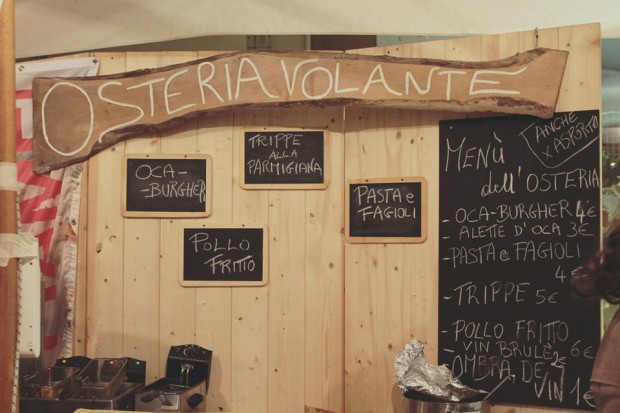 OSTERIA VOLANTE
OCA-
-BURGHER
TRIPPE
ALLA
PARMIGIANA
PASTA e
FAGIOLI
POLLO
FRITTO
ANCHE
X ASPORTO
MENÙ
dell'OSTERIA
- OCA-BURGHER 4€
- ALETTE D'OCA 3€
- PASTA e FAGIOLI
4€
- TRIPPE 5€
- POLLO FRITTO
6€
VIN BRULÈ 2€
OMBRA DE
VIN 1€